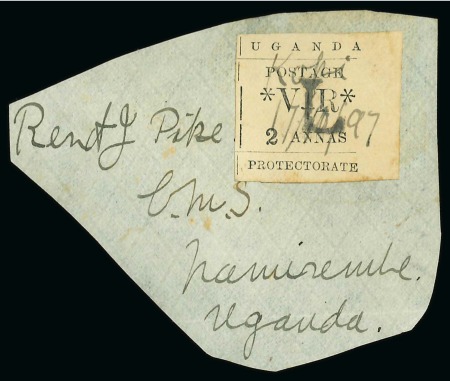 UGANDA
POSTAGE
*V R*
L
2 ANNAS
PROTECTORATE
Koki
97
Revd J Pike
C.M.S.
Namirembe.
Uganda.